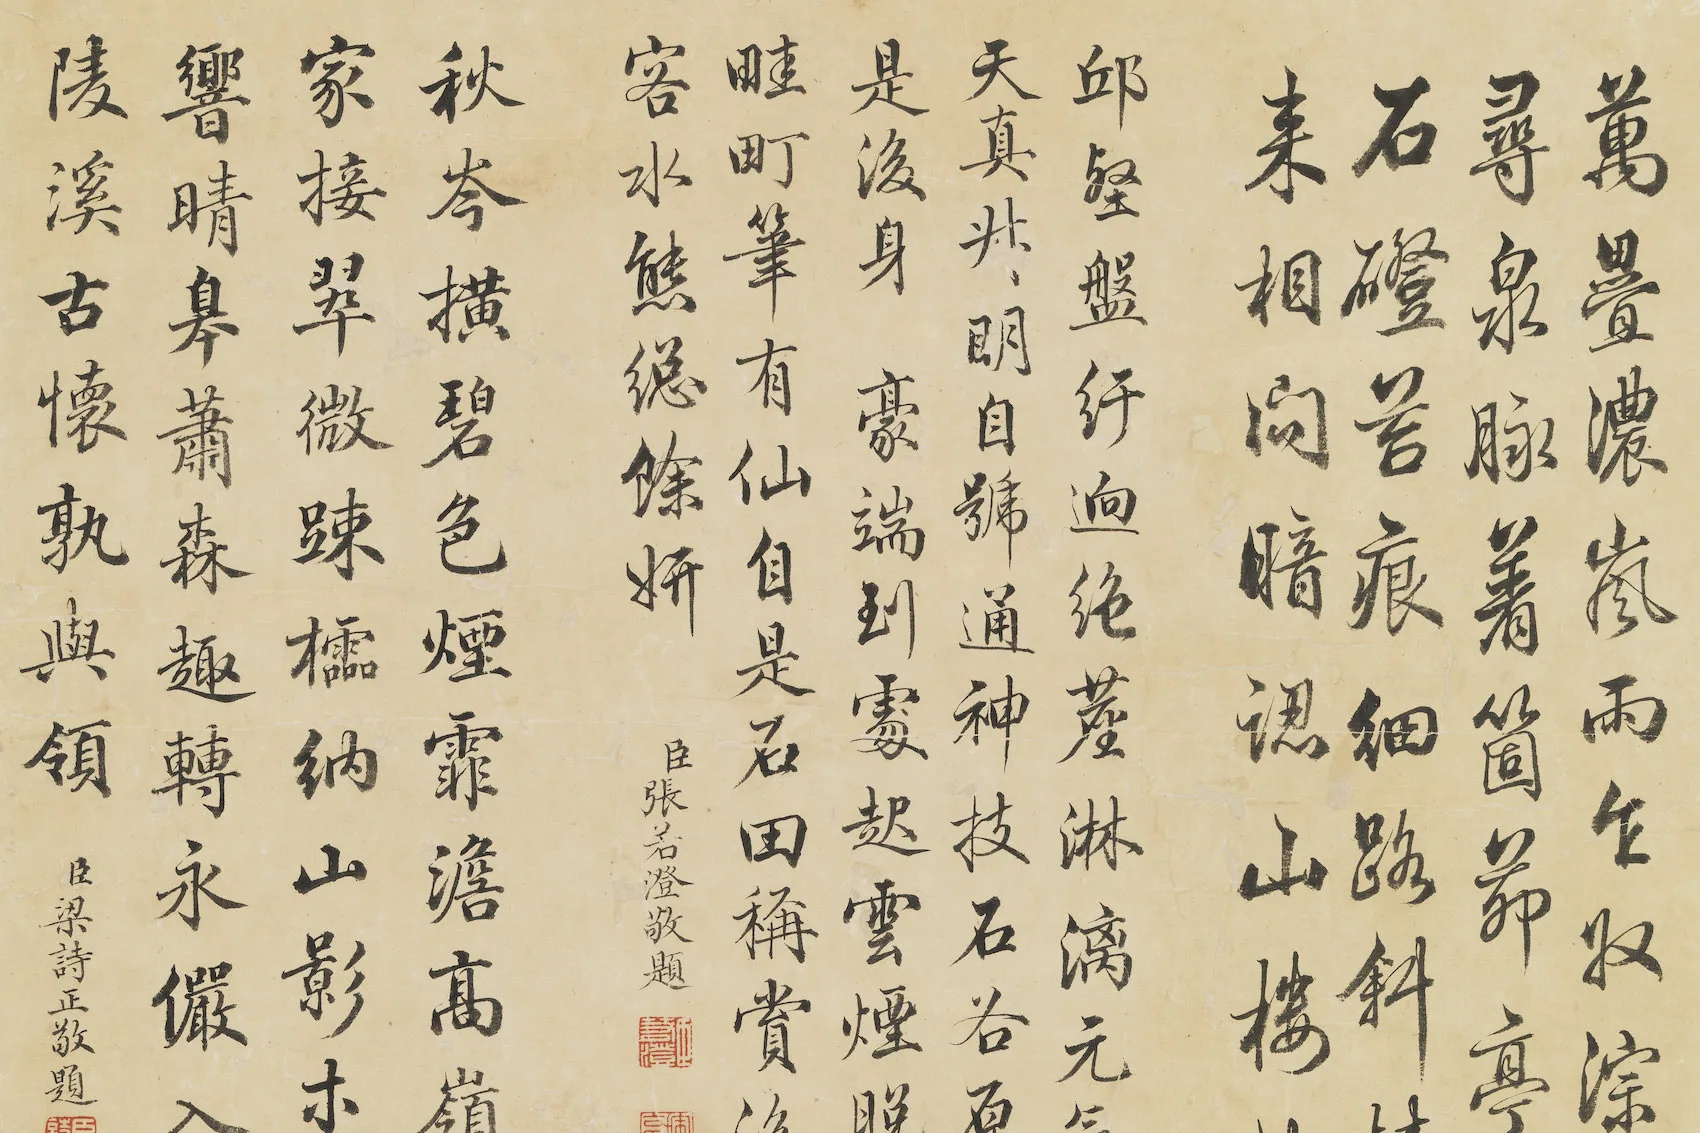 萬疊濃嵐雨乍收淙
尋泉脉著箇茆亭
石磴苔痕細路斜
来相向暗認山樓
邱壑盤紆迥絶塵淋漓元气
天真牀明自號通神技石谷原
是後身
豪端到處起雲煙脫
畦町筆有仙自是石田稱賞後
客水態總餘妍
臣張若澄敬題
秋岑橫碧色煙霏澹高嶺
家接翠微踈櫺納山影木
響晴皋蕭森趣轉永儼入
陵溪古懷孰與領
臣梁詩正敬題